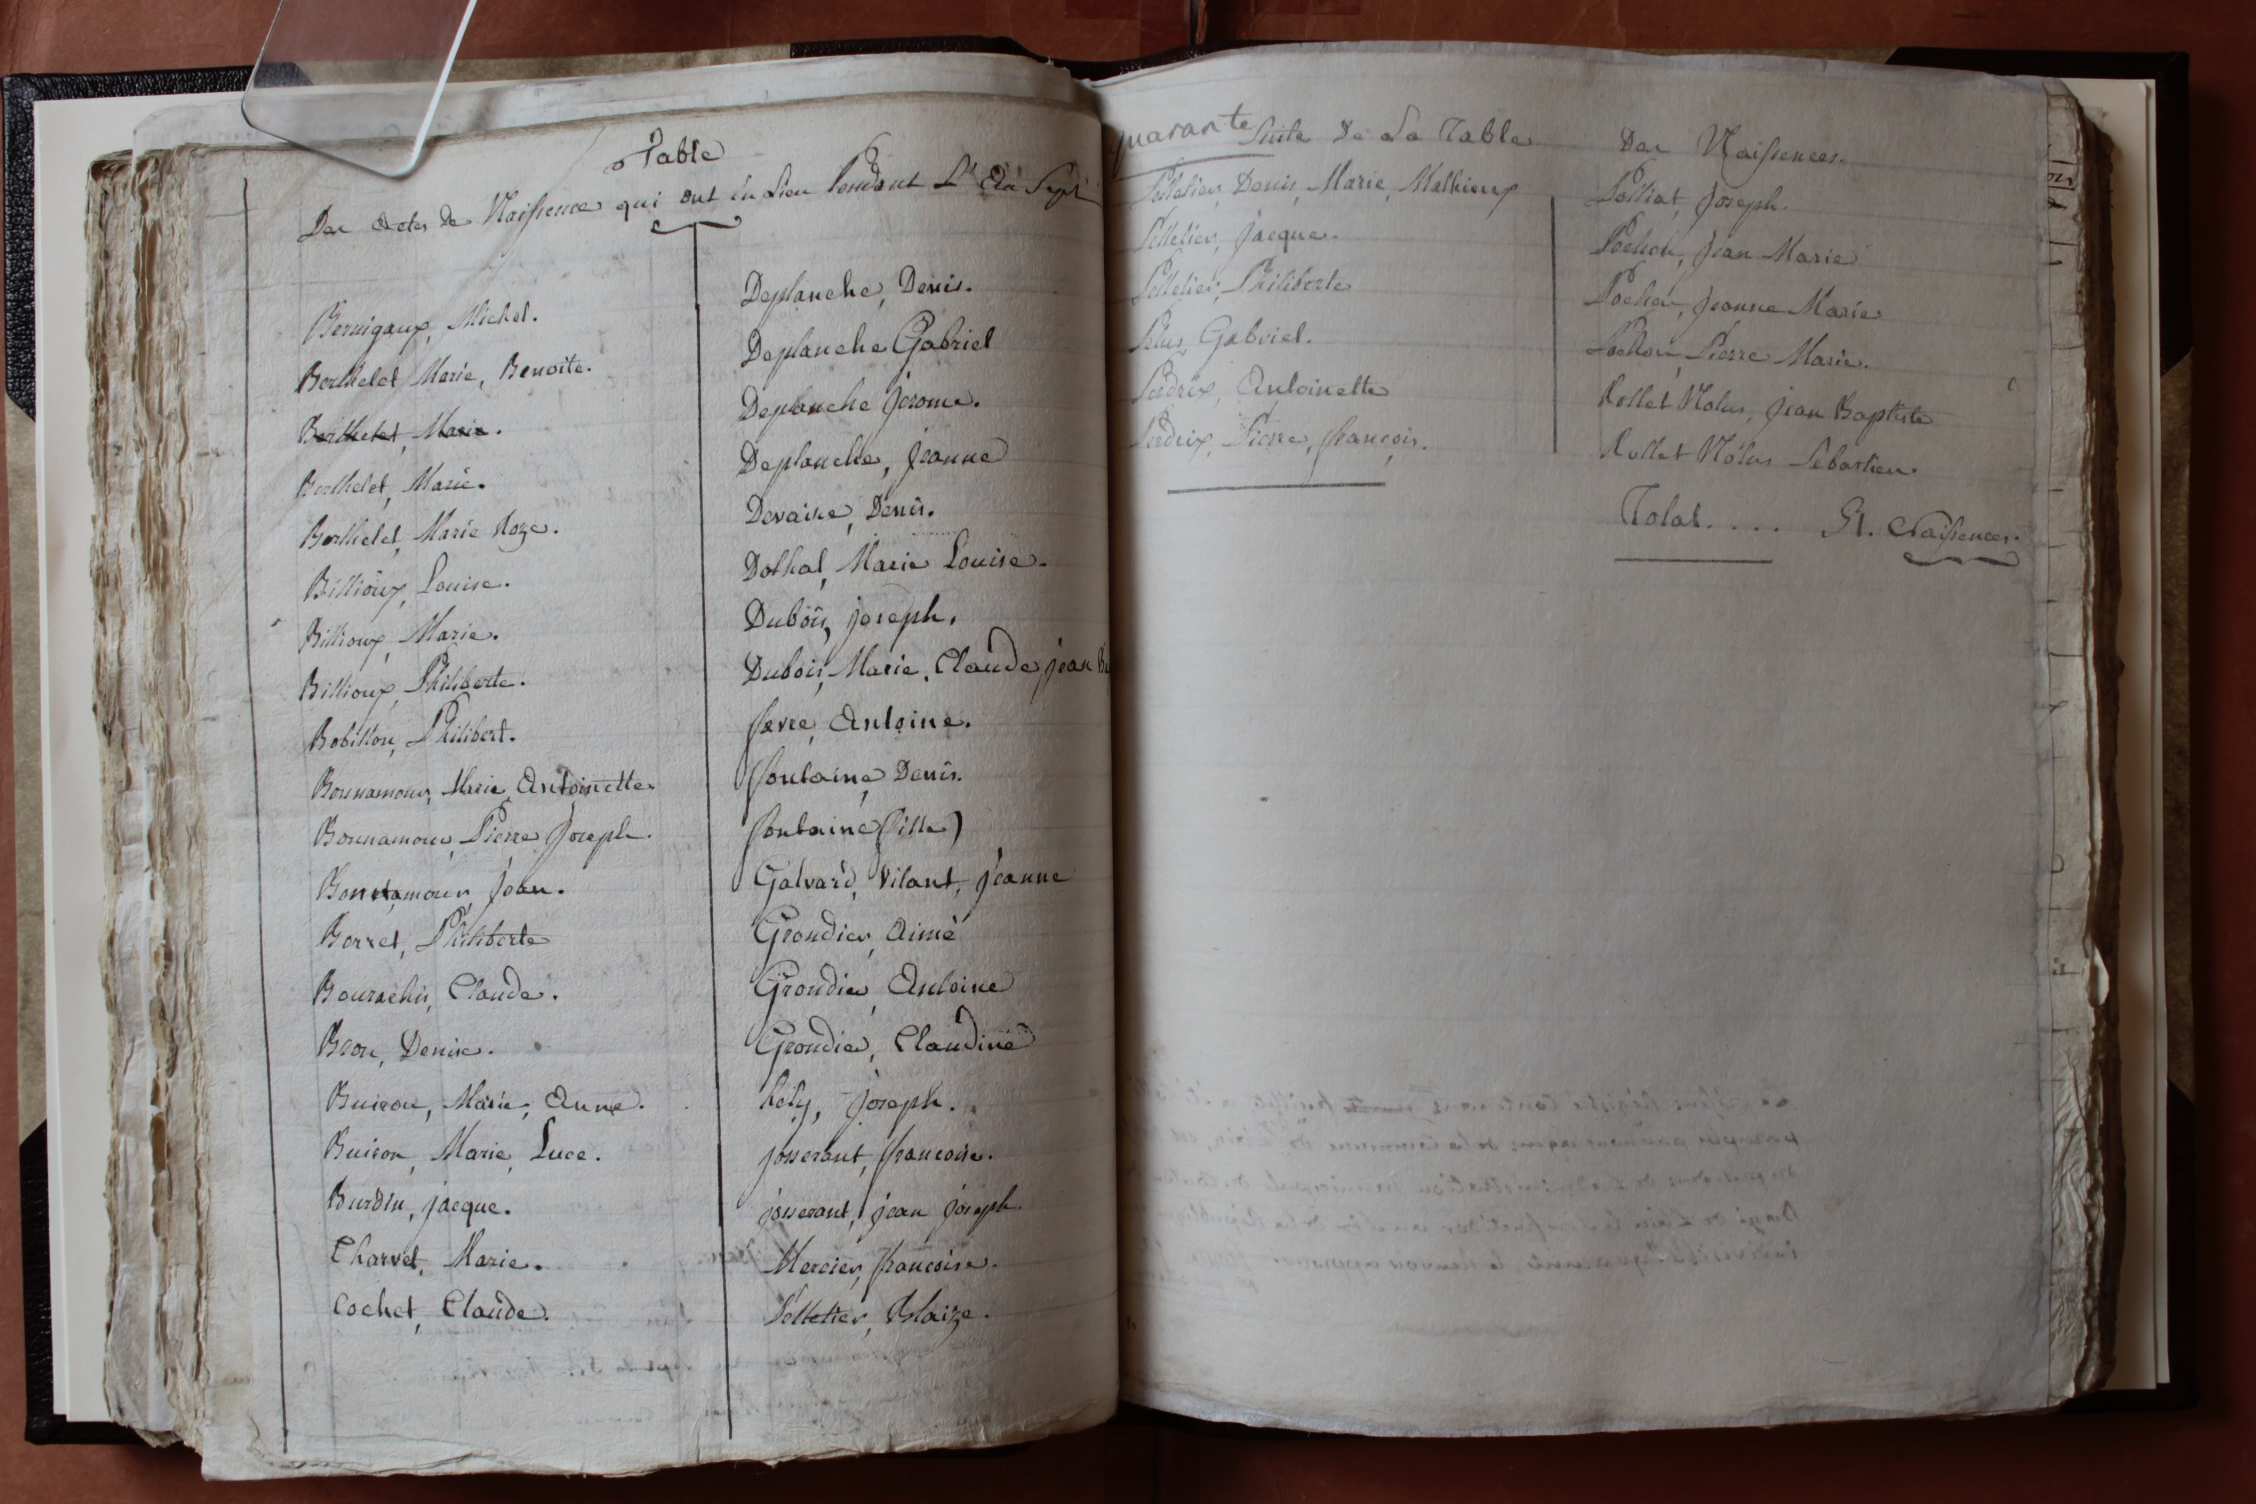 Table
Des Actes de Naissence qui ont eu Lieu Pendant L'
Bernigaux, Michel.
Berthelet, Marie, Benoite.
Berthelet, Marie.
Berthelet, Marie.
Berthelet, Marie Roze.
Billioux, Louise.
Billioux, Marie.
Billioux, Philiberte.
Bobillon, Philibert.
Bonnamour, Marie Antoinette
Bonnamour, Pierre Joseph.
Bonnamour, Jean.
Borret, Philiberte
Bourachis, Claude.
Bron, Denise.
Buiron, Marie, Anne.
Buiron, Marie, Luce.
Burdin, jacque.
Charvet, Marie.
Cochet, Claude.
Deplanche, Denis.
Deplanche Gabriel
Deplanche Jérome.
Deplanche, Jeanne
Devaise, Denis.
Dothal, Marie Louise.
Dubois, joseph.
Dubois, Marie, Claude, jean
favre, Antoine.
fontaine, Denis.
fontaine (fille)
Galvard, Vilant, Jeanne
Grondier, Aimé
Grondier, Antoine
Grondier, Claudine
hély, joseph.
josserant, francoise.
josserant, jean joseph.
Mercier, francoise.
Pelletier, Blaize.
quarante Suite De La Table Des Naissences.
Pelletier, Denis, Marie, Mathieux
Pelletier, Jacque.
Pelletier, Philiberte
Gabriel.
Perdrix, Antoinette
Perdrix, Pierre, françois.
Polliat, Joseph.
Pochon, Jean Marie
Pochon, Jeanne Marie
Pochon, Pierre Marie.
Rollet Nolus, Jean Baptiste
Rollet Nolus Sébastien.
Total .... 51. Naissences.